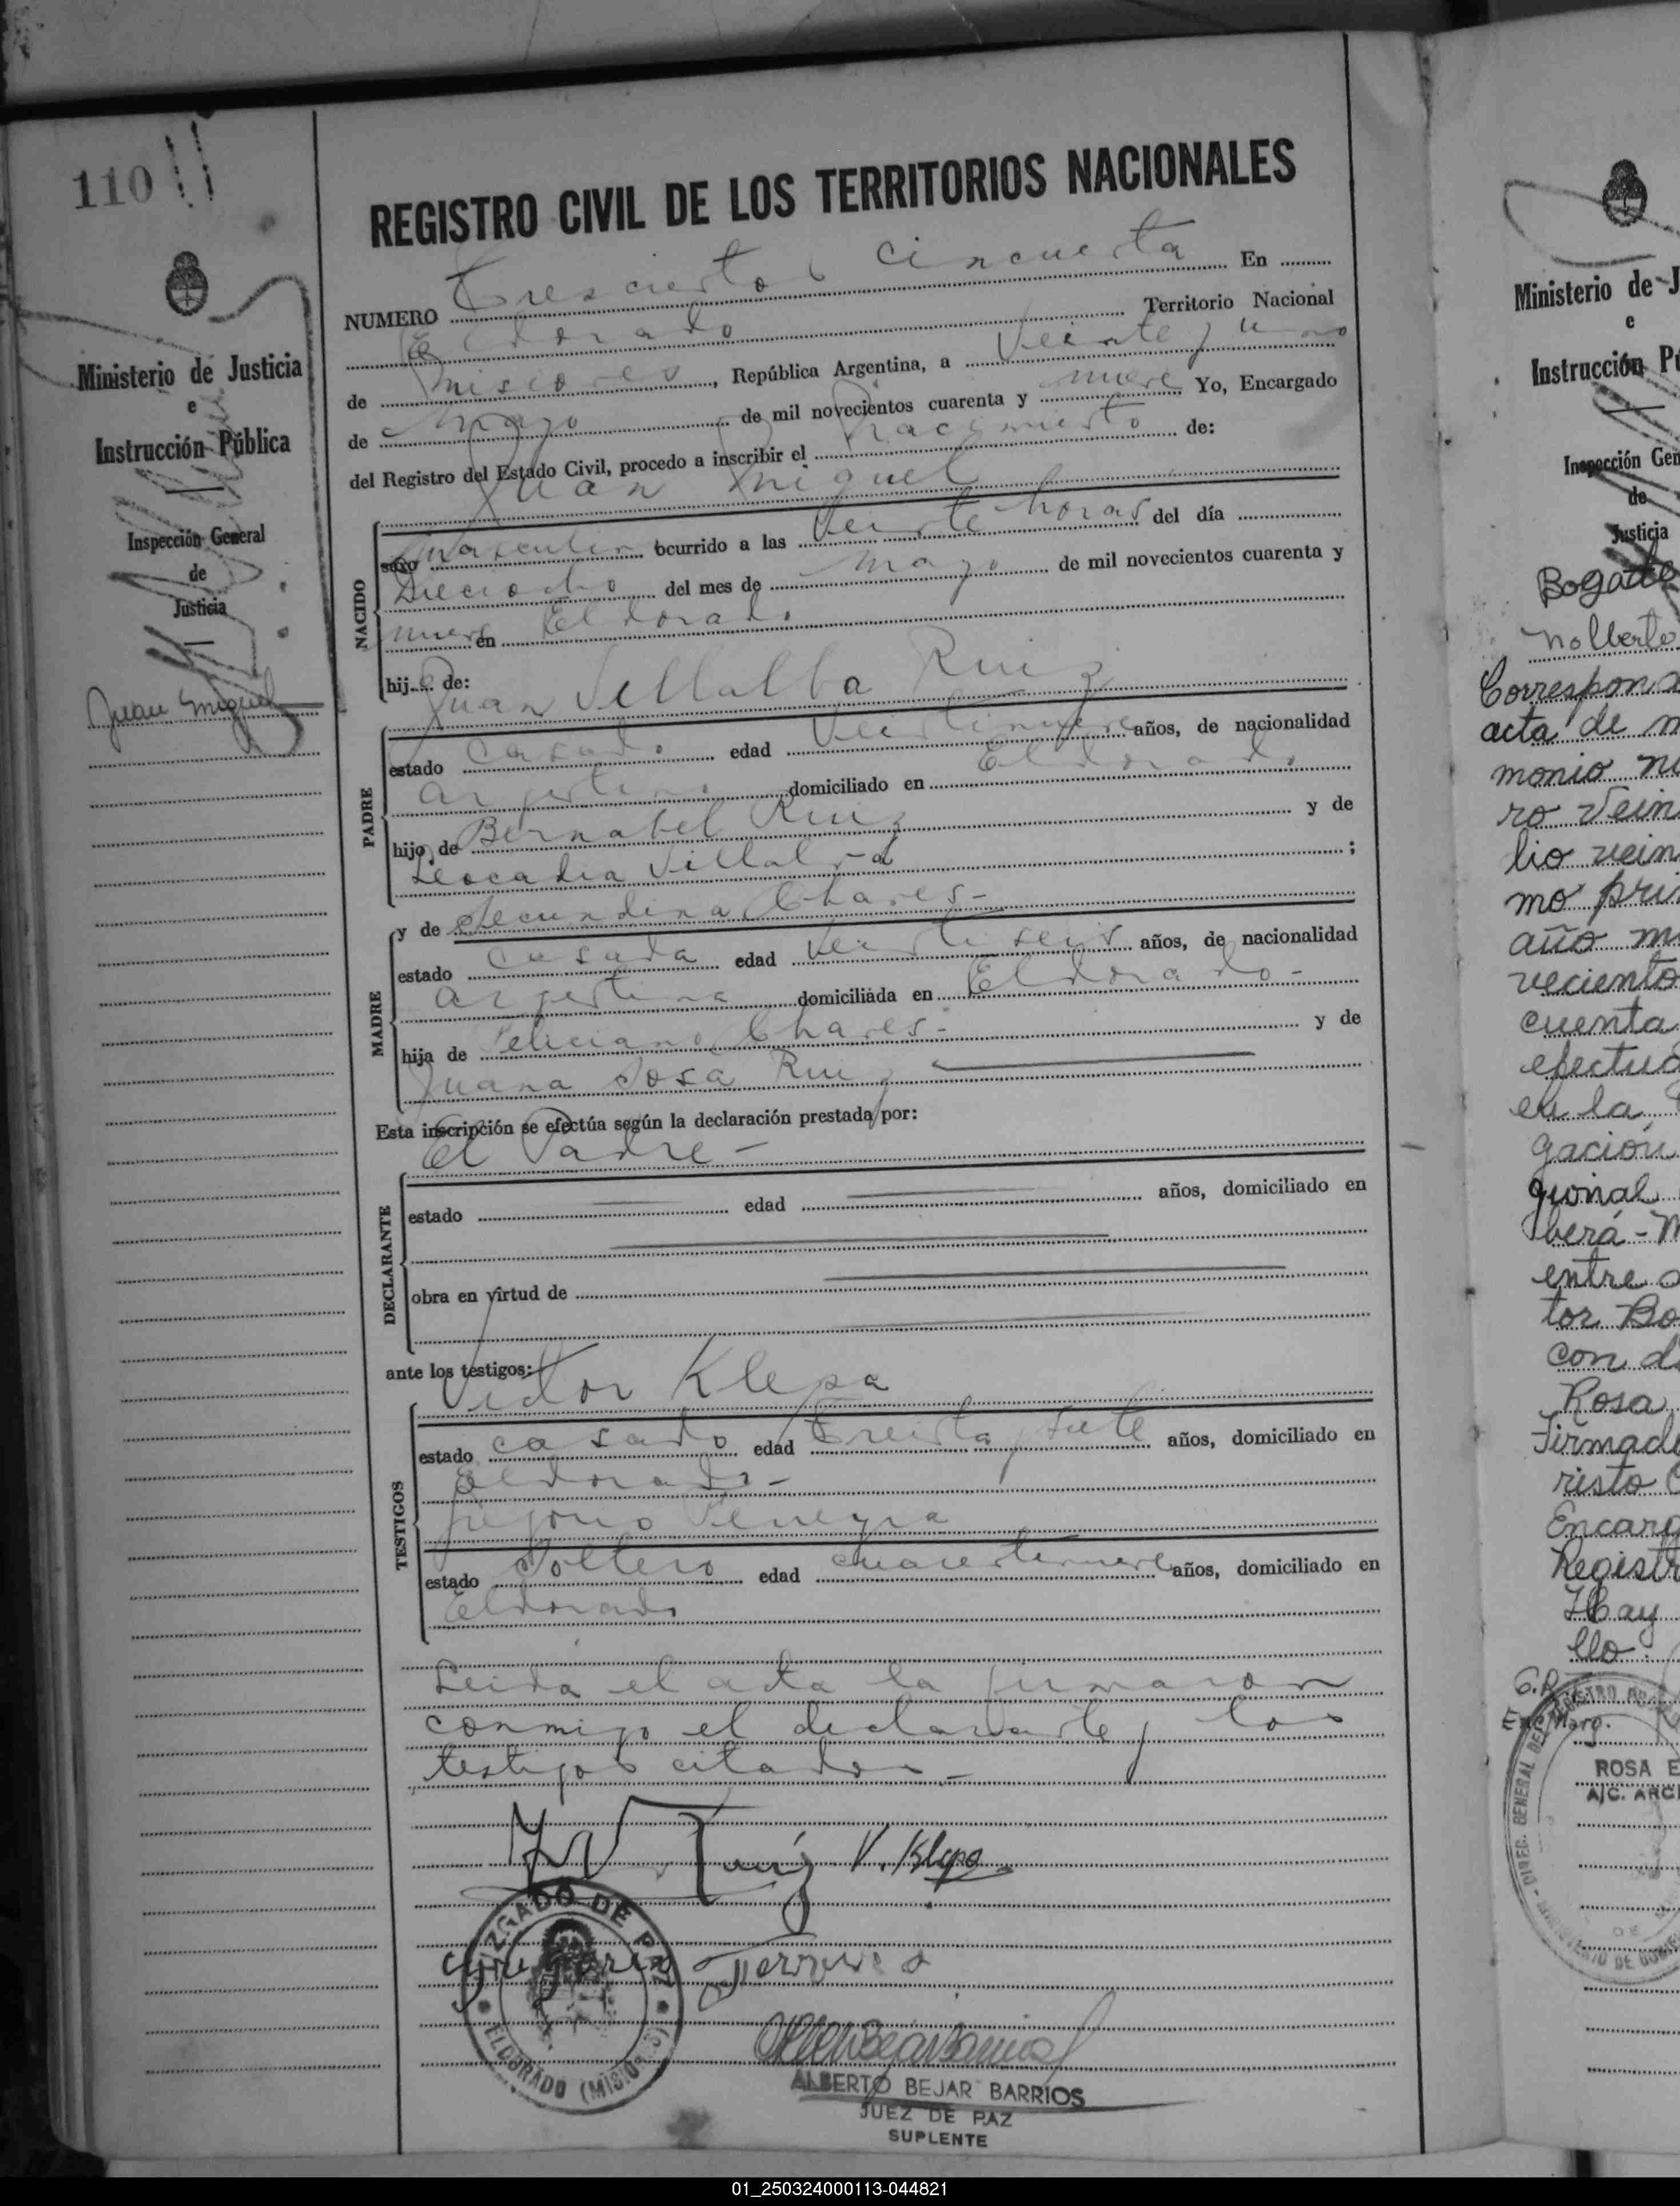 110
Ministerio de Justicia
e
Instrucción Pública
Inspección General
de
Justicia
Juan Miguel
REGISTRO CIVIL DE LOS TERRITORIOS NACIONALES
NUMERO Trescientos cincuenta En
Eldorado Territorio Nacional
de Misiones, República Argentina, a Veinte y uno
de Mayo de mil novecientos cuarenta y nueve Yo, Encargado
del Registro del Estado Civil, procedo a inscribir el Nacimiento de:
Juan Miguel
NACIDO
sexo Masculino ocurrido a las Veinte horas del día
Dieciocho del mes de Mayo de mil novecientos cuarenta y
nueve en Eldorado
hijo de:
Juan Villalba Ruiz
PADRE
estado casado edad Veintinueve años, de nacionalidad
argentino domiciliado en Eldorado
hijo de Bernabel Ruiz y de
Leocadia Villalba ;
y de Secundina Chares-
MADRE
estado casada edad Veintiseis años, de nacionalidad
argentina domiciliada en Eldorado-
hija de Feliciano Chares- y de
Juana Sosa Ruiz
Esta inscripción se efectúa según la declaración prestada por:
El Padre-
DECLARANTE
estado edad años, domiciliado en
obra en virtud de
ante los testigos:
Victor Klepa
TESTIGOS
estado casado edad Treinta y siete años, domiciliado en
Eldorado-
Gregorio
estado Soltero edad cuarentinueve años, domiciliado en
Eldorado
Leida el acta la firmaron
conmigo el declarante y los
testigos citados-
V. Klepa
Gregorio
JUZGADO DE PAZ
ELDORADO (MISIONES)
ALBERTO BEJAR BARRIOS
JUEZ DE PAZ
SUPLENTE
Ministerio de J
e
Instrucción Pú
Inspección Gen
de
Justicia
Bogado
Nolberto
Correspon
acta de m
monio nu
ro vein
lio vein
mo pri
año m
veciento
cuenta
efectua
en la
gación
gional
berá - M
entre
tor Bo
con d
Rosa
Firmado
risto
Encarg
Registr
Hay
llo.
ROSA E
A/C. ARCH
01_250324000113-044821